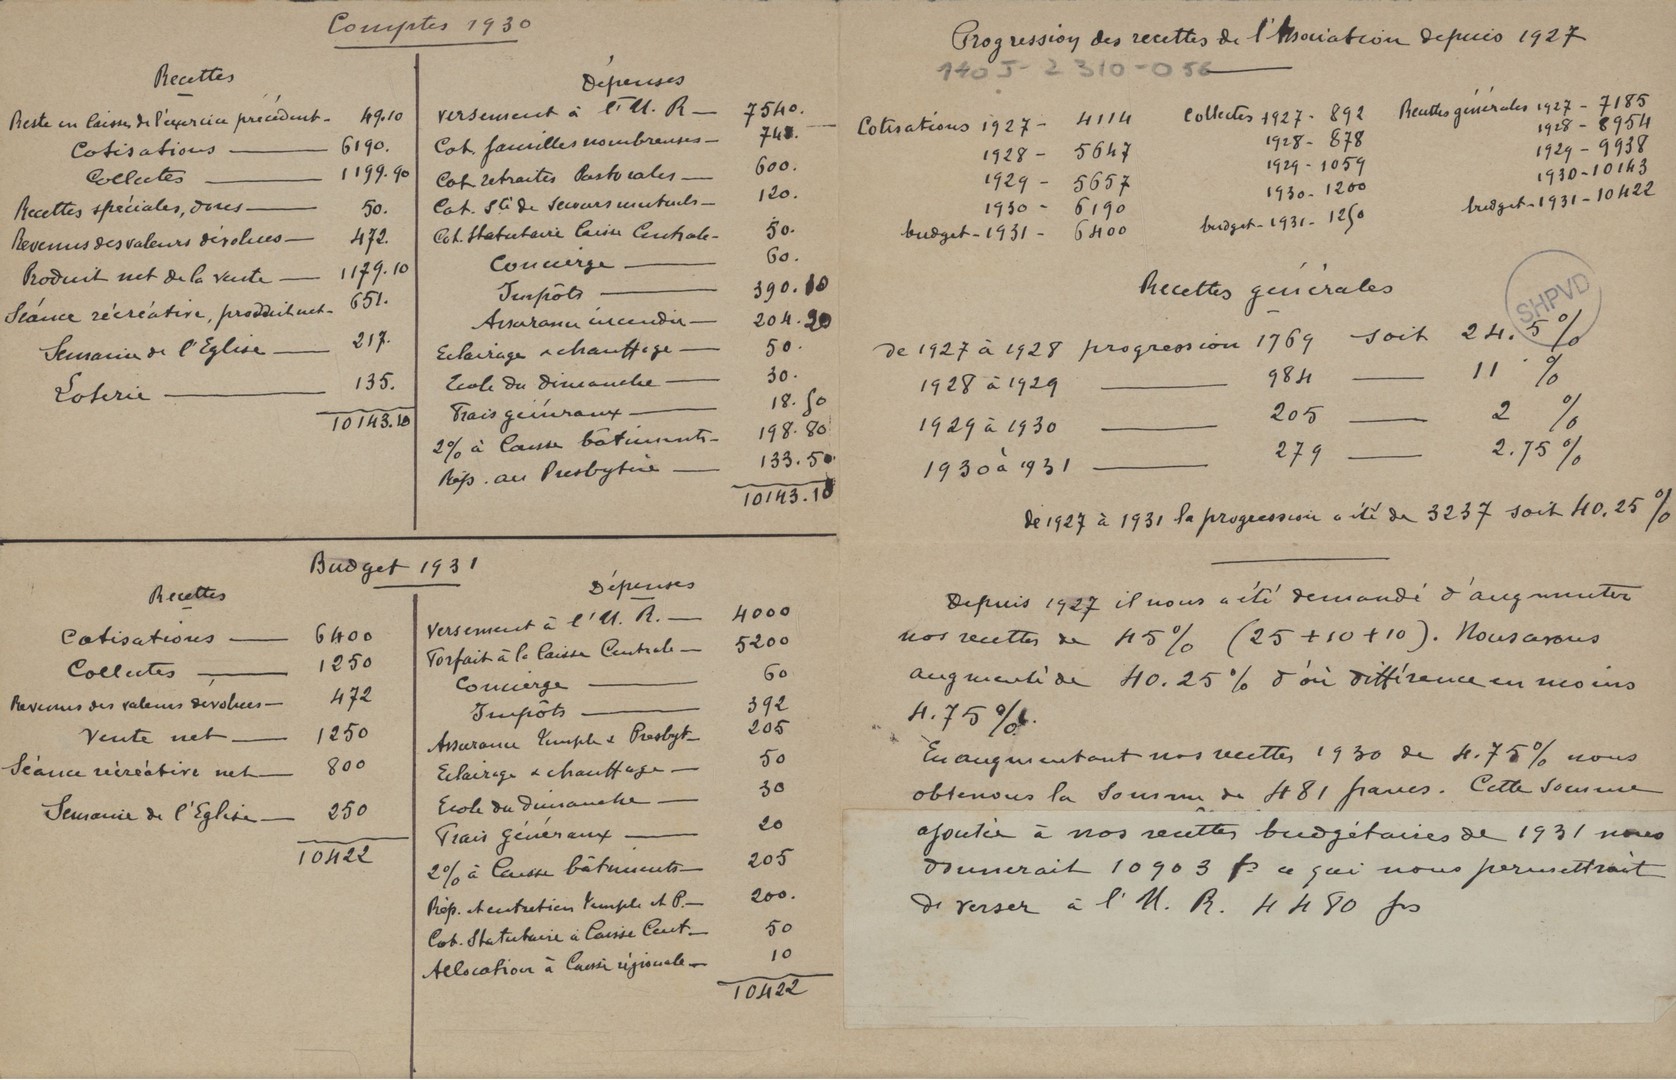 Comptes 1930
Recettes
Reste en Caisse de l'exercice précédent - 49.10
Cotisations — 6190.
Collectes — 1199.90
Recettes spéciales, dons — 50.
Revenus des valeurs dévolues — 472.
Produit net de la vente — 1179.10
Séance récréative, produit net - 651.
Semaine de l'Eglise — 217.
Loterie — 135.
10143.10
Dépenses
Versement à l'U. R — 7540.
Cot. familles nombreuses — 748. —
Cot. retraites Pastorales — 600.
Cot. Sté de Secours mutuels — 120.
Cot. Statutaire Caisse Centrale - 50.
Concierge — 60.
Impôts — 390.10
Assurance incendie — 204.20
Eclairage & chauffage — 50.
Ecole du dimanche — 30.
Frais généraux — 18.50
2% à Caisse bâtiments - 198.80
Rép. au Presbytère — 133.50
10143.10
Budget 1931
Recettes
Cotisations — 6400
Collectes — 1250
Revenus des valeurs dévolues — 472
Vente net — 1250
Séance récréative net — 800
Semaine de l'Eglise — 250
10422
Dépenses
Versement à l'U. R. — 4000
Forfait à la Caisse Centrale — 5200
Concierge — 60
Impôts — 392
Assurance Temple & Presbyt — 205
Eclairage & chauffage — 50
Ecole du dimanche — 30
Frais généraux — 20
2% à Caisse bâtiments — 205
Rép. et entretien Temple et P. — 200.
Cot. Statutaire à Caisse Cent. — 50
Allocation à Caisse régionale — 10
10422
Progression des recettes de l'Association depuis 1927
140 J-2 310-056
Cotisations 1927 - 4114
1928 - 5647
1929 - 5657
1930 - 6190
budget - 1931 - 6400
Collectes 1927 - 892
1928 - 878
1929 - 1059
1930 - 1200
budget - 1931 - 1250
Recettes générales 1927 - 7185
1928 - 8954
1929 - 9938
1930 - 10143
budget - 1931 - 10422
Recettes générales
SHPVD
de 1927 à 1928 progression 1769 soit 24.5%
1928 à 1929 — 984 — 11 %
1929 à 1930 — 205 — 2 %
1930 à 1931 — 279 — 2.75%
de 1927 à 1931 la progression a été de 3237 soit 40.25%
Depuis 1927 il nous a été demandé d'augmenter
nos recettes de 45% (25 + 10 + 10). Nous avons
augmenté de 40.25% d'où différence en moins
4.75%.
En augmentant nos recettes 1930 de 4.75% nous
obtenons la somme de 481 francs. Cette somme
ajoutée à nos recettes budgétaires de 1931 nous
donnerait 10903 fs ce qui nous permettrait
de verser à l'U. R. 4480 frs